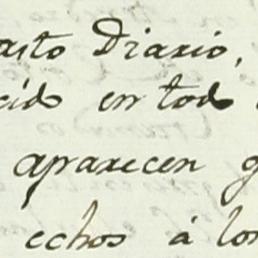 asto Diario,
cido en todo
aparecen g
echos á lo